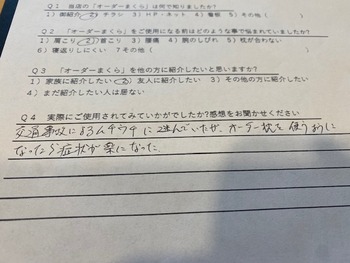 Q1 当店の「オーダーまくら」は何で知りましたか？
1）御紹介 2）チラシ 3）HP・ネット 4）看板 5）その他（ ）
Q2 「オーダーまくら」をご使用になる前はどのような事で悩まれていましたか？
1）肩こり 2）首こり 3）腰痛 4）腕のしびれ 5）枕が合わない
6）寝返りしにくい 7）その他（ ）
Q3 「オーダーまくら」を他の方に紹介したいと思いますか？
1）家族に紹介したい 2）友人に紹介したい 3）その他の方に紹介したい
4）まだ紹介したい人は居ない
Q4 実際にご使用されてみていかがでしたか？感想をお聞かせください
交通事故によるムチウチに悩んでいたが、オーダー枕を使うように
なったら症状が楽になった。